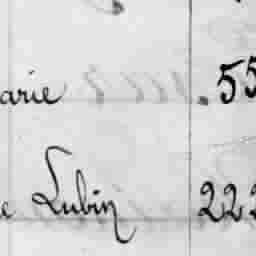 arie . 55
e Lubin 222